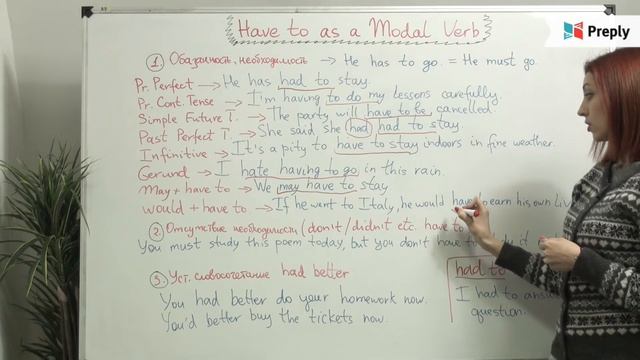 Have to as a Modal Verb
Preply
1. Обязанность, необходимость → He has to go. = He must go.
Pr. Perfect → He has had to stay.
Pr. Cont. Tense → I'm having to do my lessons carefully.
Simple Future T. → The party will have to be cancelled
Past Perfect T. → She said she had had to stay.
Infinitive → It's a pity to have to stay indoors in fine weather.
Gerund → I hate having to go in this rain.
May + have to → We may have to stay
would + have to → If he went to Italy, he would have earn his own
2. Отсутствие необходимости (don't / didn't etc. have to
You must study this poem today, but you don't have to
3. Уст. словосочетание had better
You had better do your homework now.
You'd better buy the tickets now.
had to
I had to
question.